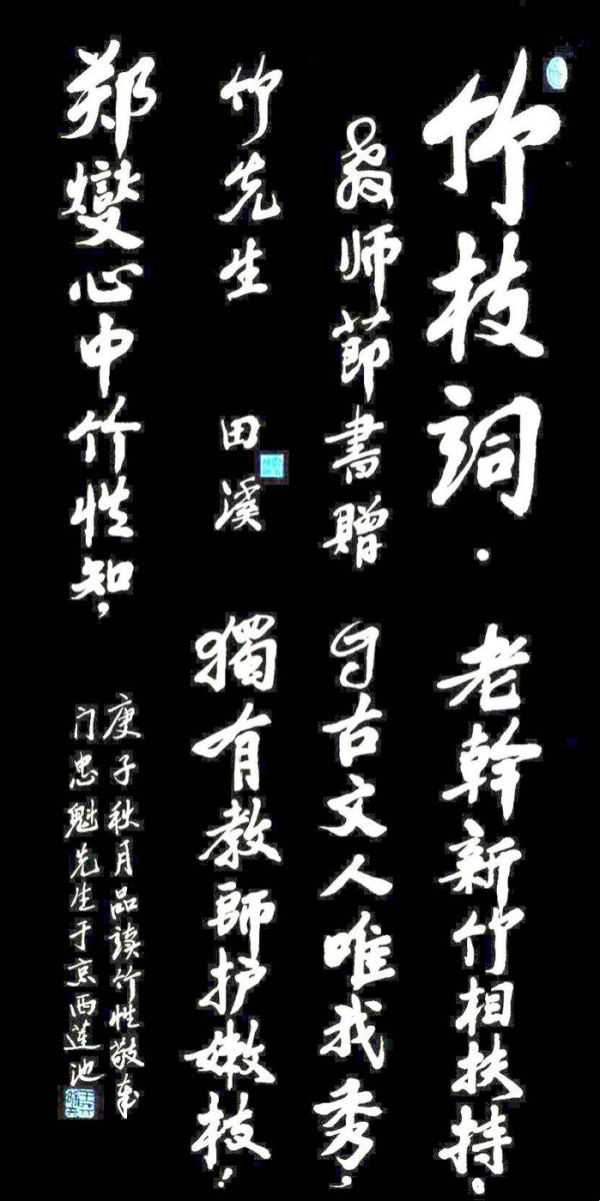 竹枝詞·
老幹新竹相扶持。
教师節書贈
自古文人唯我秀,
竹先生
田溪
獨有教師护嫩枝!
郑燮心中竹性知,
庚子秋月品读竹性敬奉
门忠魁先生于京西莲池